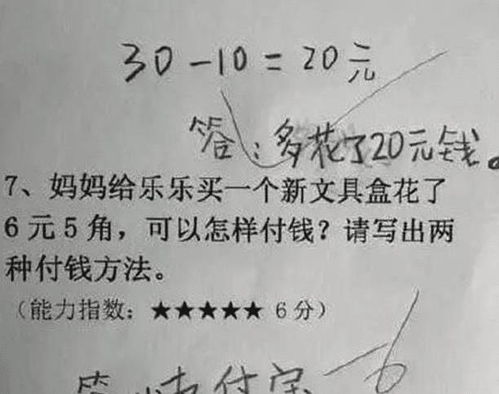 30-10=20元
答:多花了20元钱。
7、妈妈给乐乐买一个新文具盒花了
6元5角,可以怎样付钱?请写出两
种付钱方法。
(能力指数:★★★★★ 6分)
答:支付宝